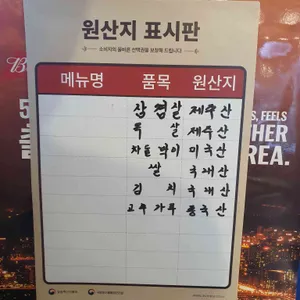 원산지 표시판
소비자의 올바른 선택권을 보장해 드립니다
메뉴명 품목 원산지
삼겹살 제주산
목살 제주산
차돌박이 미국산
쌀 국내산
김치 국내산
고추가루 중국산
FEELS
HER
REA.